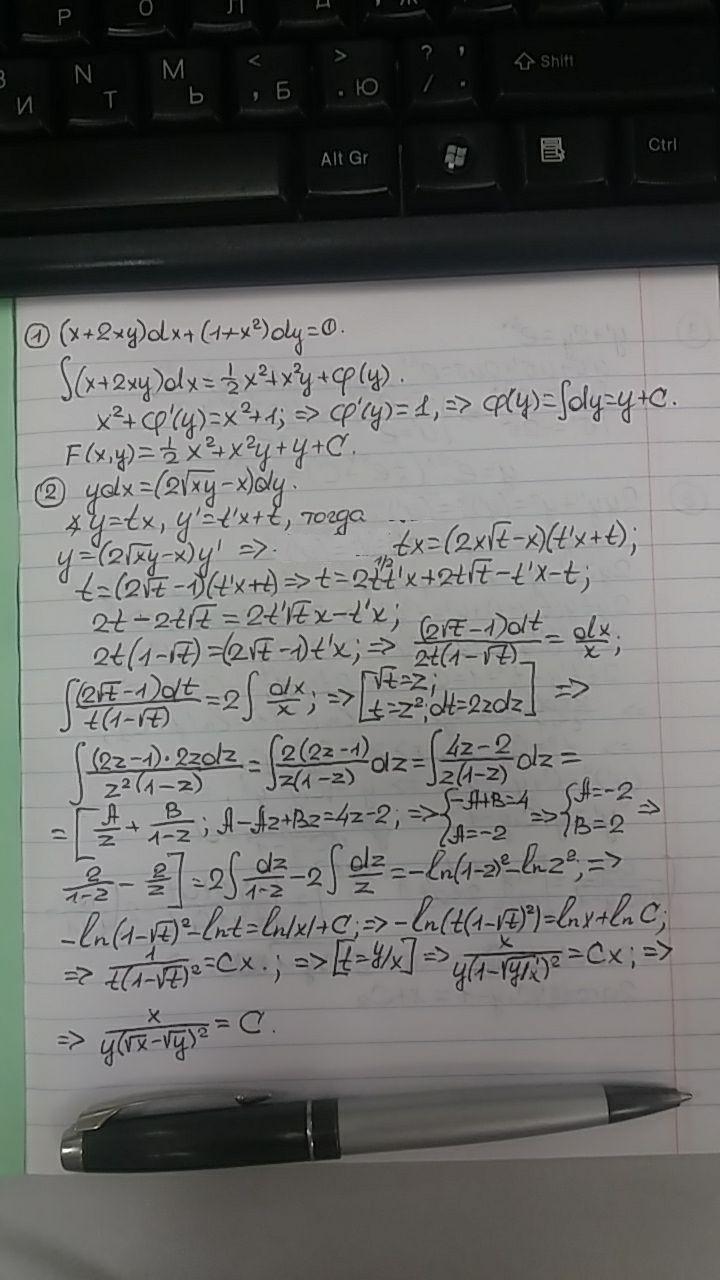 Р О Л Д
В N M < > ? ' Shift
И Т Ь , Б . Ю / .
Alt Gr Ctrl
① (x+2xy)dx+(1+x²)dy=0.
∫(x+2xy)dx=½x²+x²y+φ(y).
x²+φ'(y)=x²+1; => φ'(y)=1, => φ(y)=∫dy=y+C.
F(x,y)=½x²+x²y+y+C.
② ydx=(2√xy-x)dy.
∢ y=tx, y'=t'x+t, тогда
y=(2√xy-x)y' => tx=(2x√t-x)(t'x+t);
t=(2√t-1)(t'x+t) => t=2t^{1/2}t'x+2t√t-t'x-t;
2t-2t√t=2t'√t x-t'x;
2t(1-√t)=(2√t-1)t'x; => (2√t-1)dt/2t(1-√t) = dx/x;
∫(2√t-1)dt/t(1-√t) = 2∫dx/x; => [√t=z; t=z²; dt=2zdz] =>
∫(2z-1)·2zdz/z²(1-z) = ∫2(2z-1)/z(1-z) dz = ∫4z-2/z(1-z) dz =
= [A/z + B/1-z; A-Az+Bz=4z-2; => {-A+B=4 A=-2 => {A=-2 B=2 =>
2/1-z - 2/z] = 2∫dz/1-z - 2∫dz/z = -ln(1-z)²-lnz²; =>
-ln(1-√t)²-lnt=ln/x/+C; => -ln(t(1-√t)²)=lnx+lnC;
=> 1/t(1-√t)² = Cx.; => [t=y/x] => x/y(1-√y/x)² = Cx; =>
=> x/y(√x-√y)² = C.